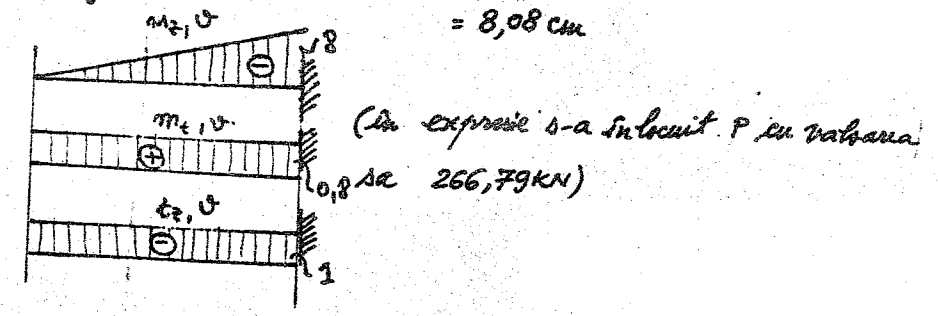 m_z, ϑ
= 8,08 cm
8
⊖
m_t, ϑ.
(în expresie s-a înlocuit P cu valoarea
⊕
0,8
sa 266,79KN)
t_z, ϑ
⊖
1